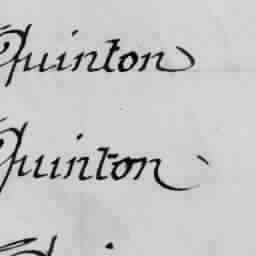 Quinton
Quinton